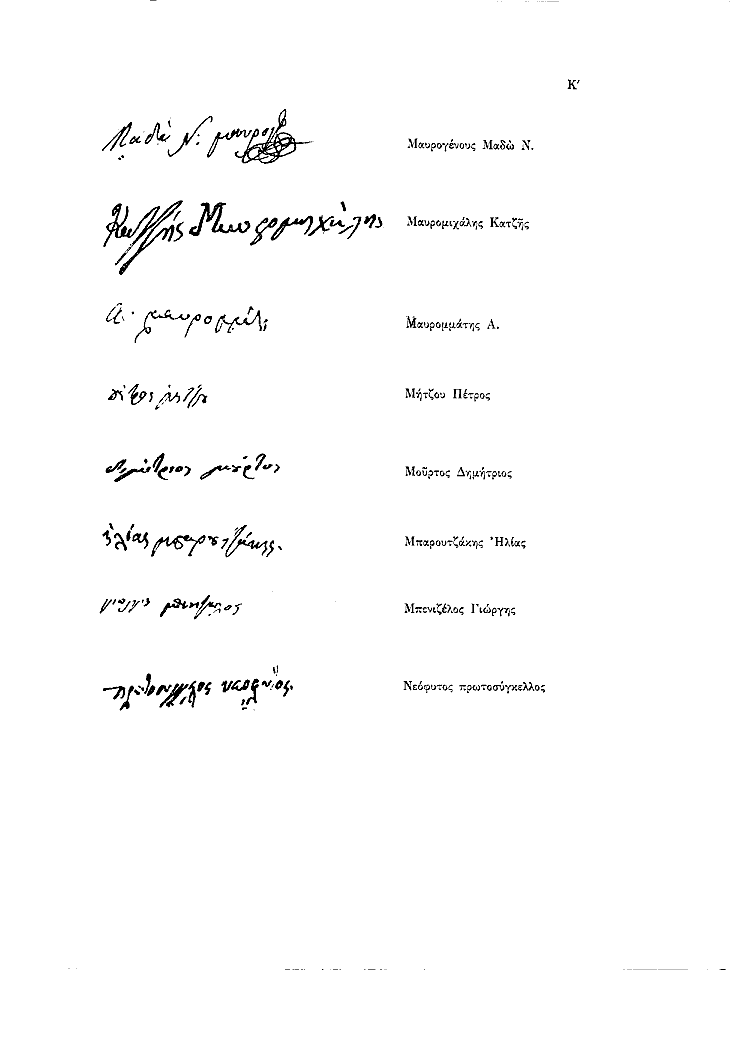 Κ′
Μαδὼ Ν. μαυρογ
Μαυρογένους Μαδὼ Ν.
Κατζῆς Μαυρομιχάλης
Μαυρομιχάλης Κατζῆς
Α. μαυρομμάτης
Μαυρομμάτης Α.
πέτρος μήτζου
Μήτζου Πέτρος
δημήτριος μούρτος
Μοῦρτος Δημήτριος
ἠλίας μπαρουτζάκης.
Μπαρουτζάκης Ἠλίας
Μπενιζέλος Γιώργης
πρωτοσύγκελος
Νεόφυτος πρωτοσύγκελλος